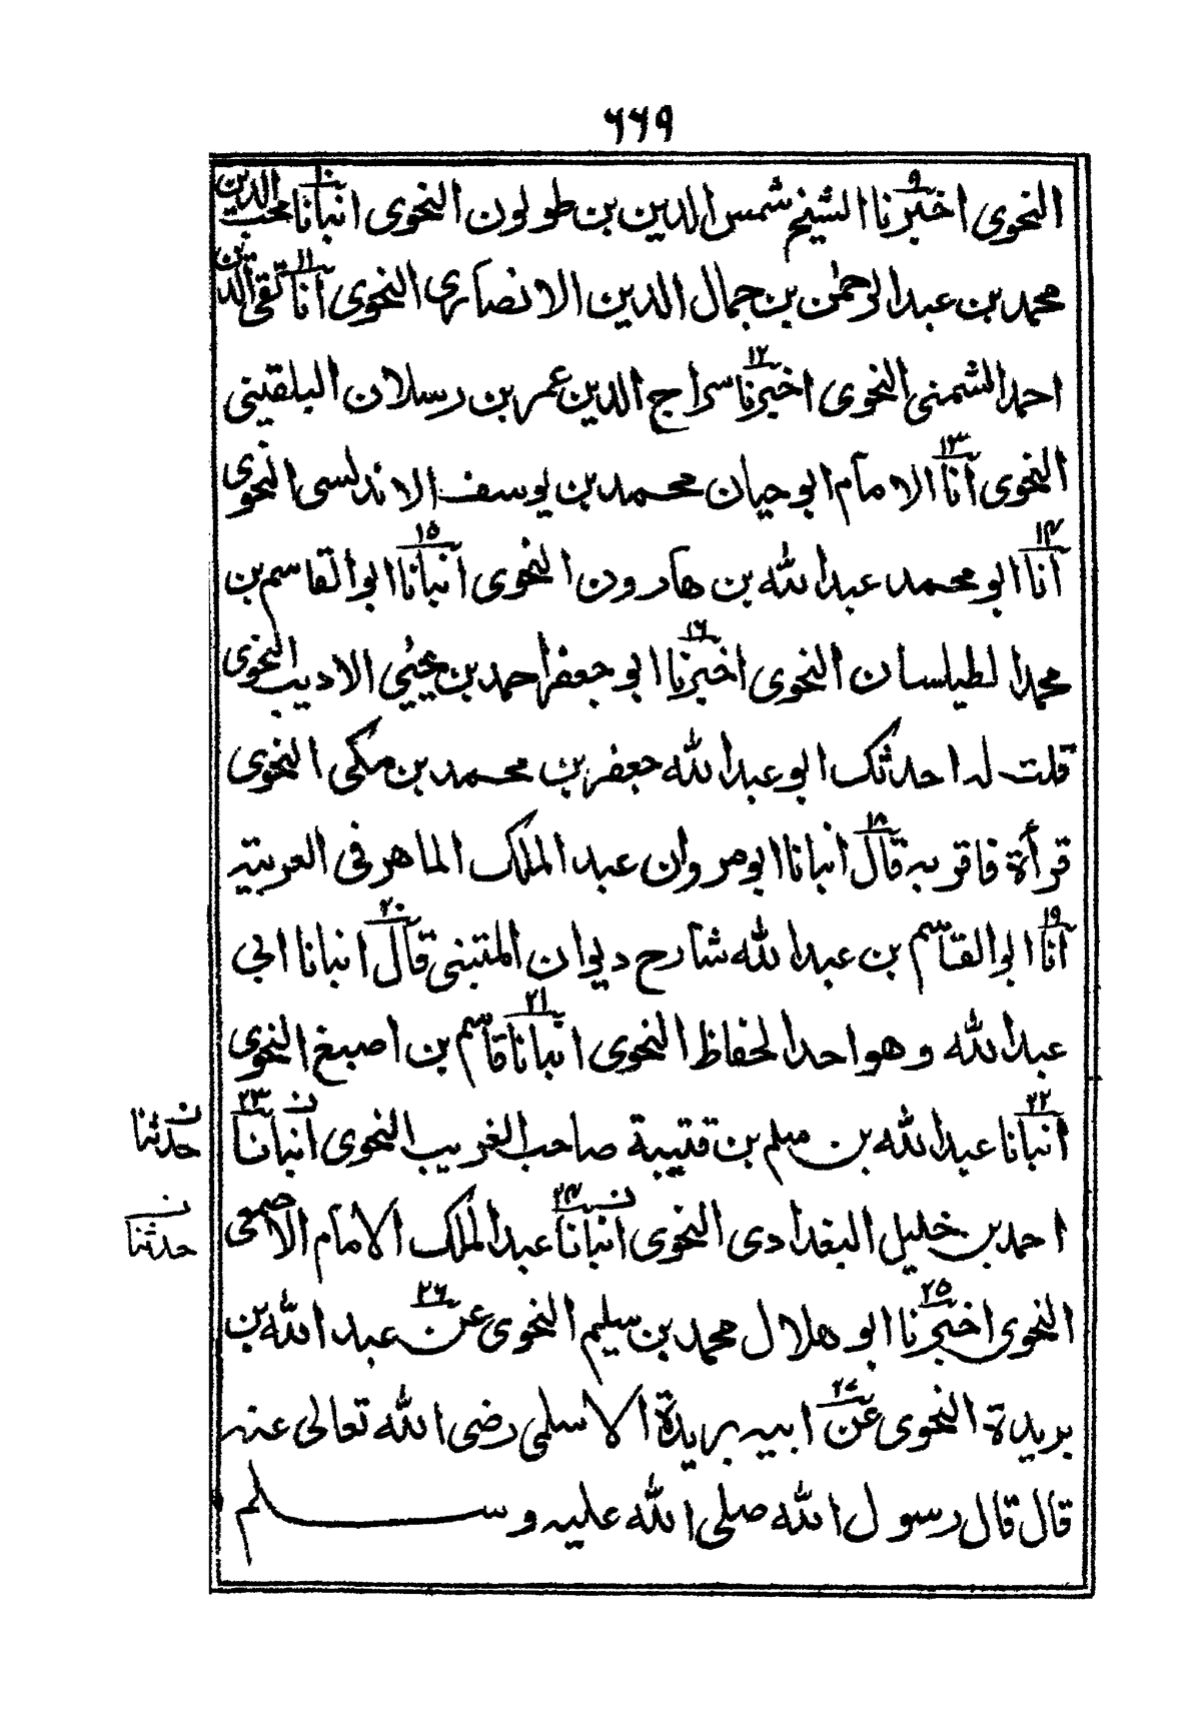 ٦٦٩
النحوى اخبرنا الشيخ شمس الدين بن طولون النحوى انبأنا محب الدين
محمد بن عبد الرحمن بن جمال الدين الانصارى النحوى انا تقى الدين
احمد الشمنى النحوى اخبرنا سراج الدين عمر بن رسلان البلقينى
النحوى انا الامام ابو حيان محمد بن يوسف الاندلسى النحوى
انا ابو محمد عبد الله بن هارون النحوى انبأنا ابو القاسم بن
محمد الطيلسان النحوى اخبرنا ابو جعفر احمد بن يحيٰى الاديب النحوى
قلت له احدثك ابو عبد الله جعفر بن محمد بن مكى النحوى
قرأة فاقر به قال انبانا ابو مروان عبد الملك الماهر فى العربية
انا ابو القاسم بن عبد الله شارح ديوان المتبنى قال انبانا ابى
عبد الله وهو احد الحفاظ النحوى انبانا قاسم بن اصبغ النحوى
انبانا عبد الله بن مسلم بن قتيبة صاحب الغريب النحوى انبانا
احمد بن خليل البغدادى النحوى انبانا عبد الملك الامام الاصمعى
النحوى اخبرنا ابو هلال محمد بن سليم النحوى عن عبد الله بن
بريدة النحوى عن ابيه بريدة الاسلمى رضى الله تعالى عنه
قال قال رسول الله صلى الله عليه وسلم
٩
١٠
١١
١٢
١٣
١٤
١٥
١٦
١٨
١٩
٢٠
٢١
٢٢
٢٣
٢٤
٢٥
٢٦
٢٧
ن حدثنا
ن حدثنا